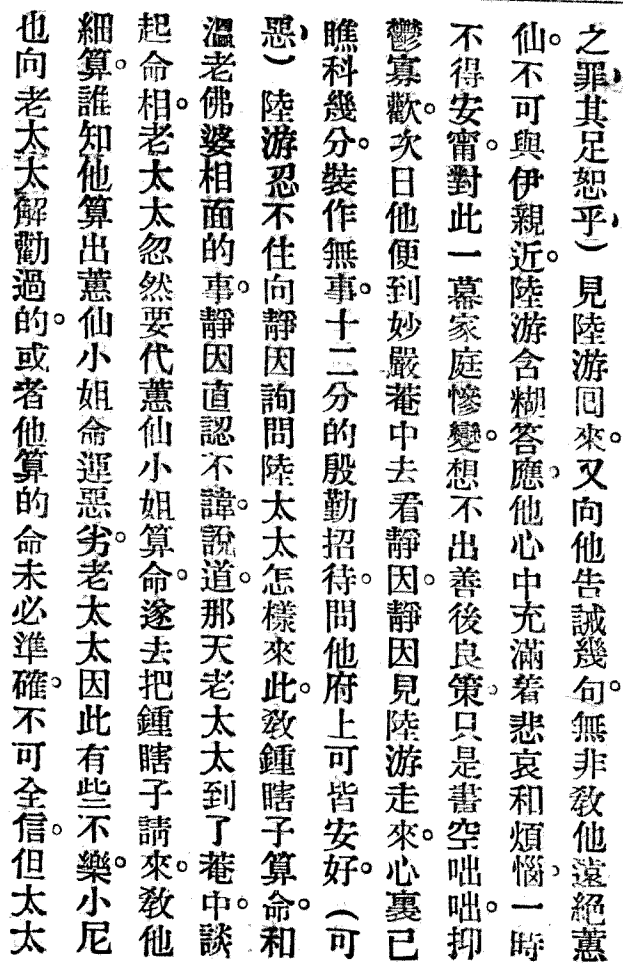 之罪其足恕乎）見陸游回來。又向他告誡幾句。無非敎他遠絕蕙
仙。不可與伊親近。陸游含糊答應。他心中充滿着悲哀和煩惱。一時
不得安甯。對此一幕家庭慘變。想不出善後良策。只是書空咄咄。抑
鬱寡歡。次日他便到妙嚴菴中去看靜因。靜因見陸游走來。心裏已
瞧科幾分。裝作無事。十二分的殷勤招待。問他府上可皆安好。（可
惡）陸游忍不住向靜因詢問陸太太怎樣來此。敎鍾瞎子算命。和
溫老佛婆相面的事。靜因直認不諱。說道。那天老太太到了菴中。談
起命相。老太太忽然要代蕙仙小姐算命。遂去把鍾瞎子請來。敎他
細算。誰知他算出蕙仙小姐命運惡劣。老太太因此有些不樂。小尼
也向老太太解勸過的。或者他算的命未必準確。不可全信。但太太